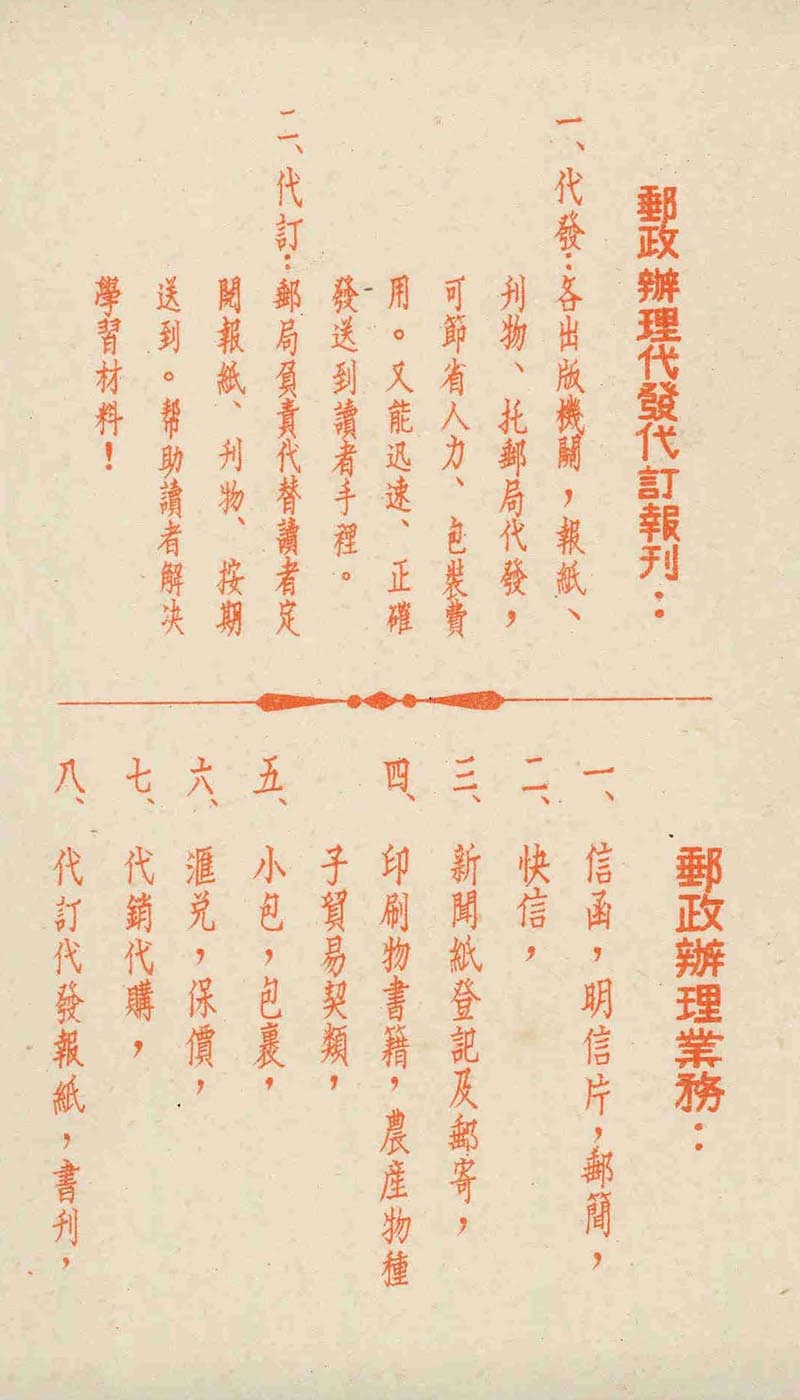 郵政辦理代發代訂報刊：
一、代發：各出版機關，報紙、
刊物、托郵局代發，
可節省人力、包裝費
用。又能迅速、正確
發送到讀者手裡。
二、代訂：郵局負責代替讀者定
閱報紙、刊物、按期
送到。帮助讀者解决
學習材料！
郵政辦理業務：
一、信函，明信片，郵簡，
二、快信，
三、新聞紙登記及郵寄，
四、印刷物書籍，農産物種
子貿易契類，
五、小包，包裹，
六、滙兑，保價，
七、代銷代購，
八、代訂代發報紙，書刊，